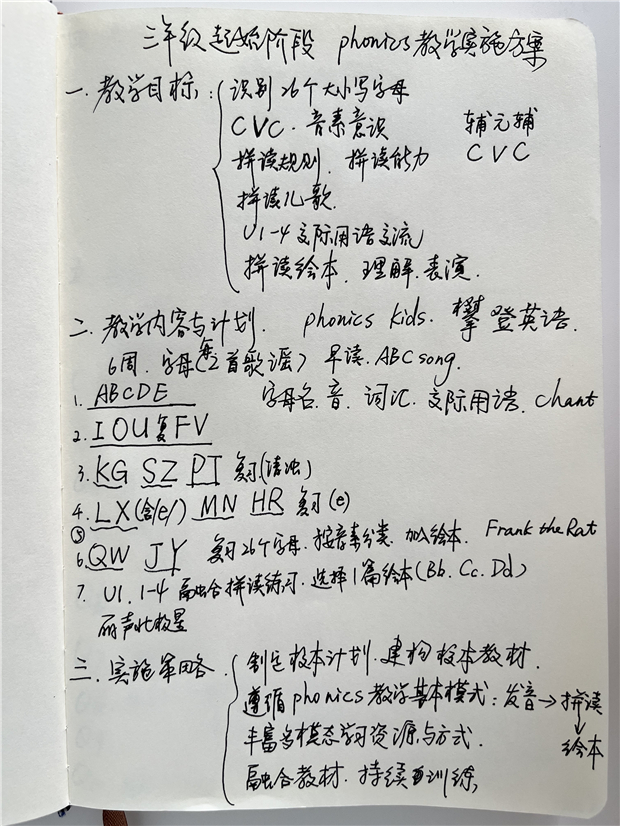 三年级起始阶段 phonics教学实施方案
一.教学目标: 识别26个大小写字母
CVC.音素意识 辅元辅
拼读规则.拼读能力 CVC
拼读儿歌.
U1-4交际用语交流
拼读绘本.理解.表演.
二.教学内容与计划. phonics kids. 攀登英语.
6周.字母(每2首歌谣) 早读.ABC song.
1. ABCDE 字母名.音.词汇.交际用语.chant
2. IOU复FV
3. KG SZ PT 复习(清浊)
4. LX(含/e/) MN HR 复习(e)
⑤
6. QW JY 复习26个字母.按音素分类.加入绘本. Frank the Rat
7. U1.1-4融合拼读练习.选择1篇绘本(Bb.Cc.Dd)
丽声北极星
三.实施策略. 制定校本计划.建构校本教材.
遵循phonics教学基本模式:发音→拼读
丰富多模态学习资源与方式. ↓
绘本
融合教材.持续训练,